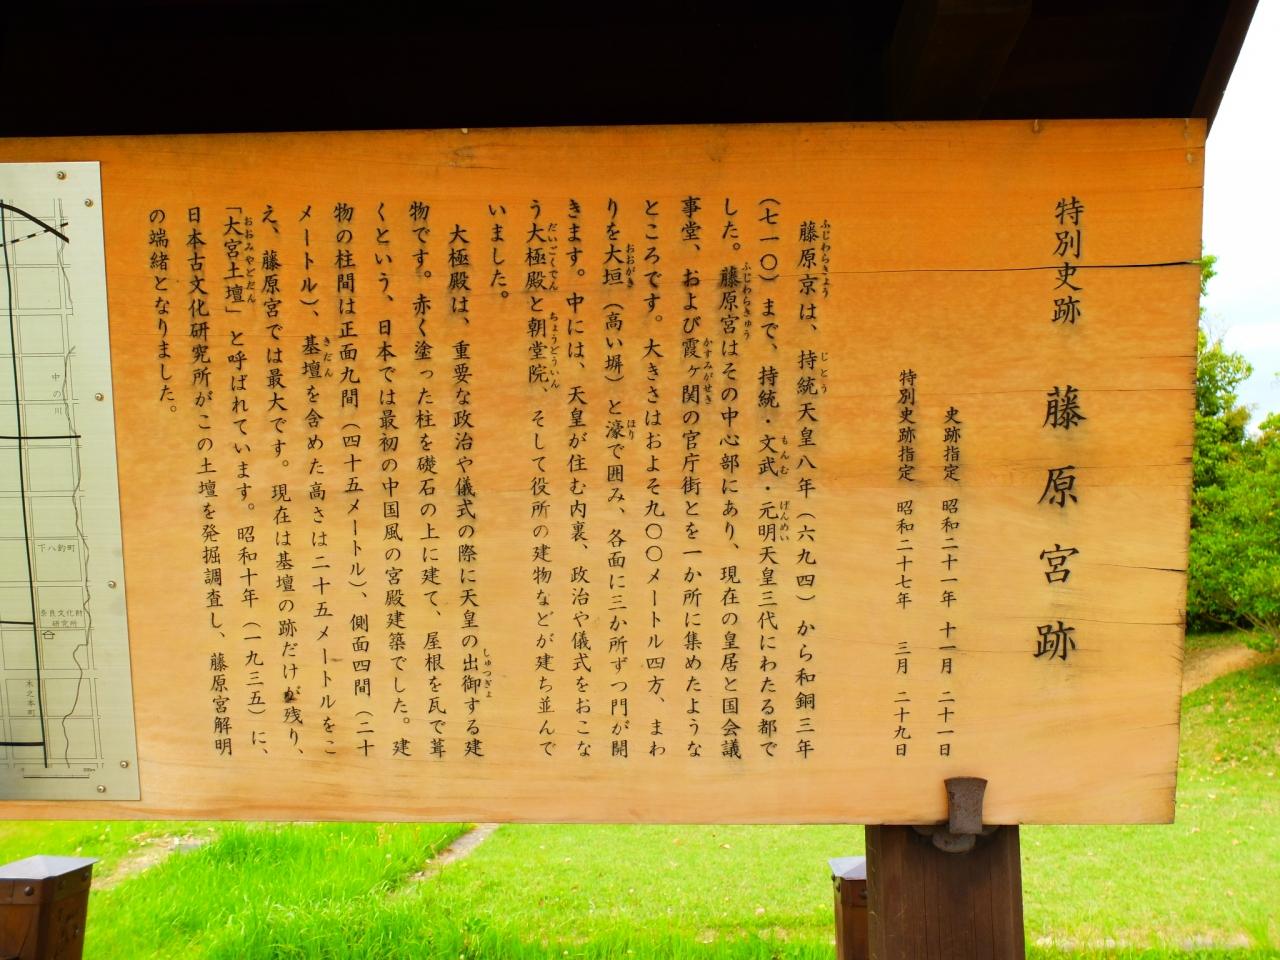 特別史跡 藤原宮跡
史跡指定 昭和二十一年 十一月 二十一日
特別史跡指定 昭和二十七年 三月 二十九日
藤原京は、持統天皇八年(六九四)から和銅三年
(七一〇)まで、持統・文武・元明天皇三代にわたる都で
した。藤原宮はその中心部にあり、現在の皇居と国会議
事堂、および霞ヶ関の官庁街とを一か所に集めたような
ところです。大きさはおよそ九〇〇メートル四方、まわ
りを大垣(高い塀)と濠で囲み、各面に三か所ずつ門が開
きます。中には、天皇が住む内裏、政治や儀式をおこな
う大極殿と朝堂院、そして役所の建物などが建ち並んで
いました。
大極殿は、重要な政治や儀式の際に天皇の出御する建
物です。赤く塗った柱を礎石の上に建て、屋根を瓦で葺
くという、日本では最初の中国風の宮殿建築でした。建
物の柱間は正面九間(四十五メートル)、側面四間(二十
メートル)、基壇を含めた高さは二十五メートルをこ
え、藤原宮では最大です。現在は基壇の跡だけが残り、
「大宮土壇」と呼ばれています。昭和十年(一九三五)に、
日本古文化研究所がこの土壇を発掘調査し、藤原宮解明
の端緒となりました。
ふじわらきょう
じとう
もんむ
げんめい
ふじわらきゅう
かすみがせき
おおがき
ほり
だいごくでん
ちょうどういん
しゅつぎょ
きだん
おおみやどだん
中の川
下八釣町
奈良文化財
研究所
木之本町